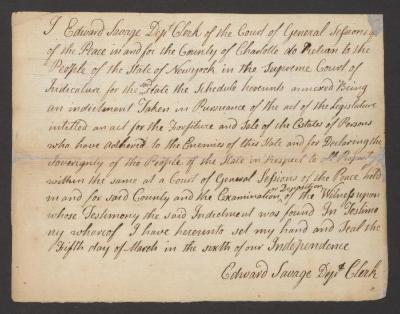 I Edward Savage Depᵗ Clerk of the Court of General Sessions
of the Peace in and for the County of Charlotte do Return to the
People of the State of Newyork in the Supreme Court of
Judicature for the said State the Schedule hereunto annexed Being
an indictment Taken in Pursuance of the act of the Legislature
intitled an act for the Forfiture and Sale of the Estates of Persons
who have adhered to the Enemies of this State and for Declareing the
Sovereignty of the People of the State in respect to all Property
within the same at a Court of General Sessions of the Peace held
in and for said County and the Examination or Deposition of the Witness upon
whose Testimony the said Indictment was found In Testimo
ny whereof I have hereunto set my hand and Seal the
Fifth day of March in the sixth of our Independence
Edward Savage Depᵗ Clerk